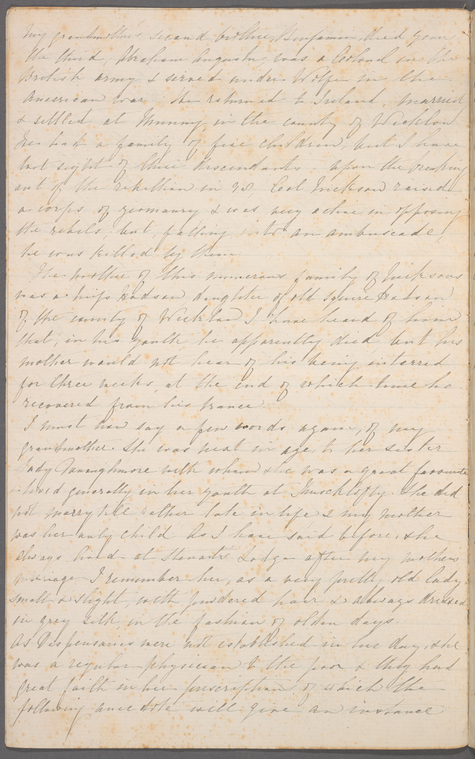 my grandmother's second brother, Benjamin, died young
the third, Abraham Augustus, was a Colonel in the
British army & served under Wolfe in the
American war. He returned to Ireland, married
& settled at Money, in the county of Wicklow
He had a family of five children, but I have
lost sight of their descendants. Upon the breaking
out of the rebellion in 98 Col raised
a corps of yeomanry & was very active in opposing
the rebels, but, falling into an ambuscade,
he was killed by them.
The mother of this numerous family of
was a Miss Hudson daughter of old Squire Hudson
of the county of Wicklow I have heard of him
that, in his youth he apparently died but his
mother would not hear of his being interred
for three weeks, at the end of which time he
recovered from his trance
I must now say a few words again, of my
grandmother. She was next in age to her sister
Lady Donoughmore with whom she was a great favourite
& lived generally in her youth at Knocklofty. She did
not marry till rather late in life & my mother
was her only child. As I have said before, she
always lived at Lodge after my mother's
marriage. I remember her, as a very pretty old lady
small & slight, with powdered hair & always dressed
in grey silk in the fashion of olden days.
As Dispensaries were not established in her day, she
was a regular physician to the poor & they had
great faith in her prescriptions of which the
following anecdote will give an instance